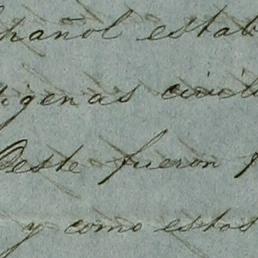 spañol estab
ígenas civili
Oeste fueron
y como estos